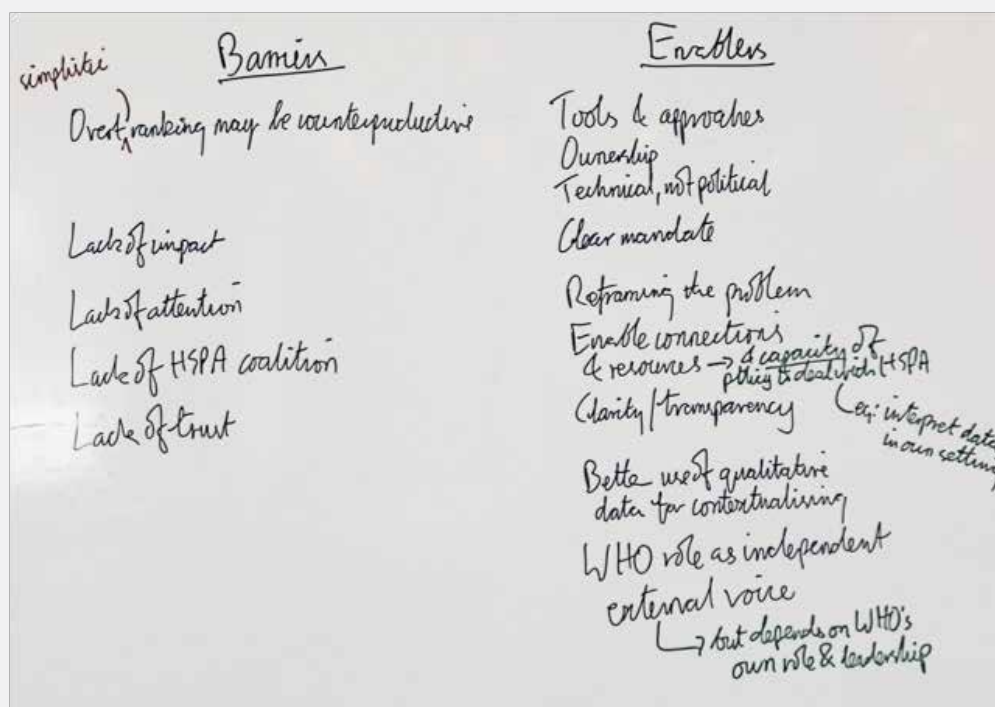 Barriers
simplistic
Overt ranking may be counterproductive
Lack of impact
Lack of attention
Lack of HSPA coalition
Lack of trust
Enablers
Tools & approaches
Ownership
Technical, not political
Clear mandate
Reframing the problem
Enable connections
& resources → & capacity of
to deal with HSPA
eg: interpret data
in own setting
Clarity/transparency
Better use of qualitative
data for contextualising
WHO role as independent
external voice
but depends on WHO's
own role & leadership